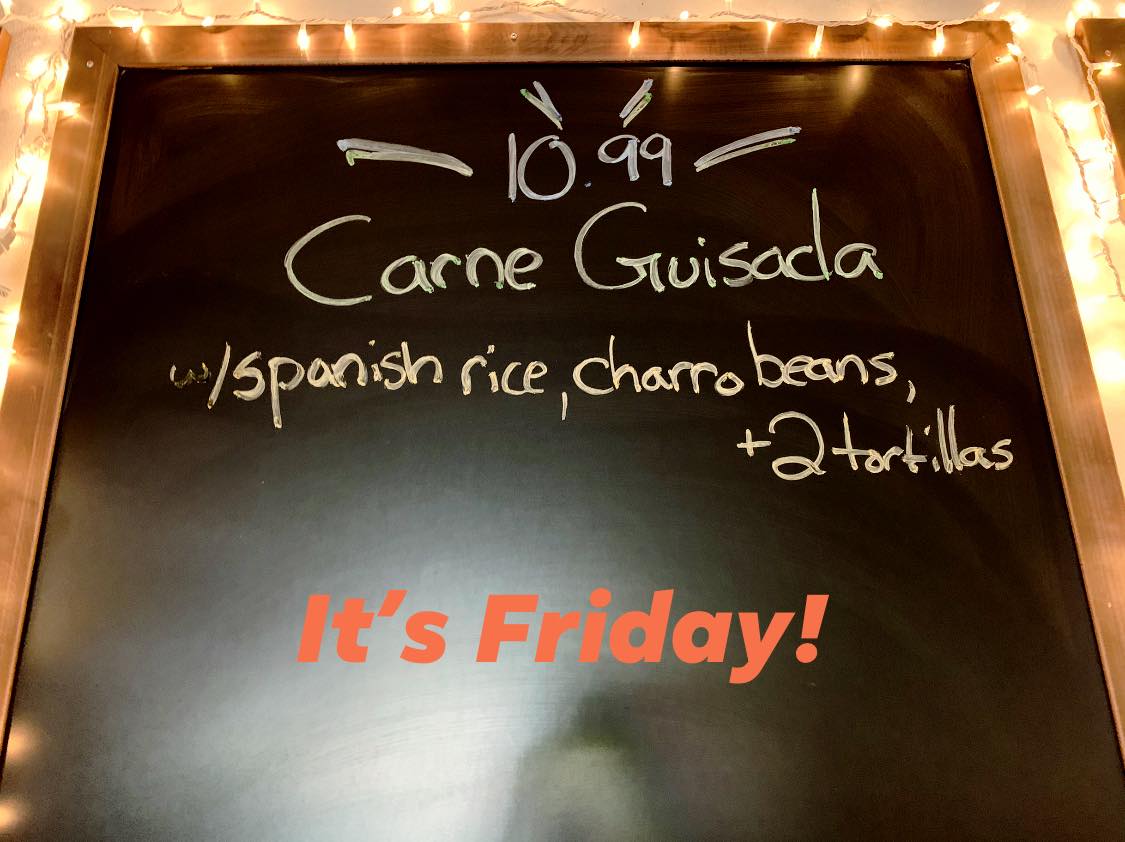 10.99
Carne Guisada
w/spanish rice, charro beans,
+2 tortillas
It's Friday!